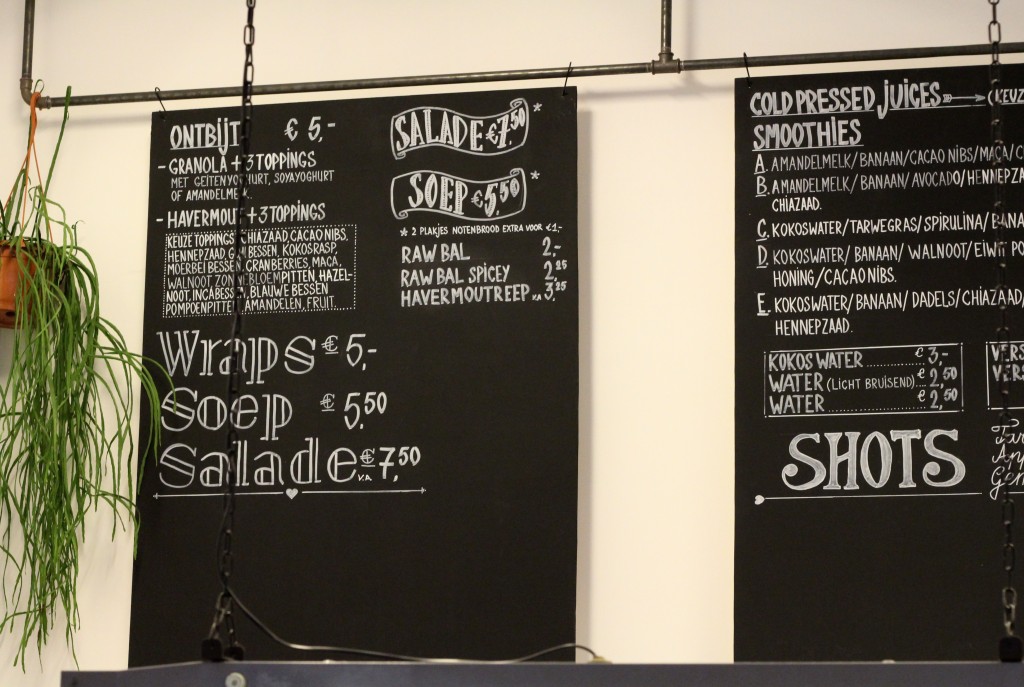 ONTBIJT € 5,-
- GRANOLA + 3 TOPPINGS
MET GEITENYOGHURT, SOYAYOGHURT
OF AMANDELMELK
- HAVERMOUT + 3 TOPPINGS
KEUZE TOPPINGS: CHIAZAAD, CACAO NIBS,
HENNEPZAAD, GOJI BESSEN, KOKOSRASP,
MOERBEI BESSEN, CRANBERRIES, MACA,
WALNOOT ZONNEBLOEMPITTEN, HAZEL-
NOOT, INCABESSEN, BLAUWE BESSEN
POMPOENPITTEN, AMANDELEN, FRUIT.
Wraps € 5,-
Soep € 5,50
Salade v.a. € 7,50
SALADE € 7,50 *
SOEP € 5,50 *
* 2 PLAKJES NOTENBROOD EXTRA VOOR € 1,-
RAW BAL 2,-
RAW BAL SPICEY 2,25
HAVERMOUTREEP v.a. 3,25
COLD PRESSED JUICES (KEUZ
SMOOTHIES
A. AMANDELMELK/BANAAN/CACAO NIBS/MACA/C
B. AMANDELMELK/BANAAN/AVOCADO/HENNEPZA
CHIAZAAD.
C. KOKOSWATER/TARWEGRAS/SPIRULINA/BANA
D. KOKOSWATER/BANAAN/WALNOOT/EIWIT PO
HONING/CACAO NIBS.
E. KOKOSWATER/BANAAN/DADELS/CHIAZAAD/
HENNEPZAAD.
KOKOS WATER ........ € 3,-
WATER (LICHT BRUISEND)... € 2,50
WATER ................ € 2,50
VERS
VERS
SHOTS